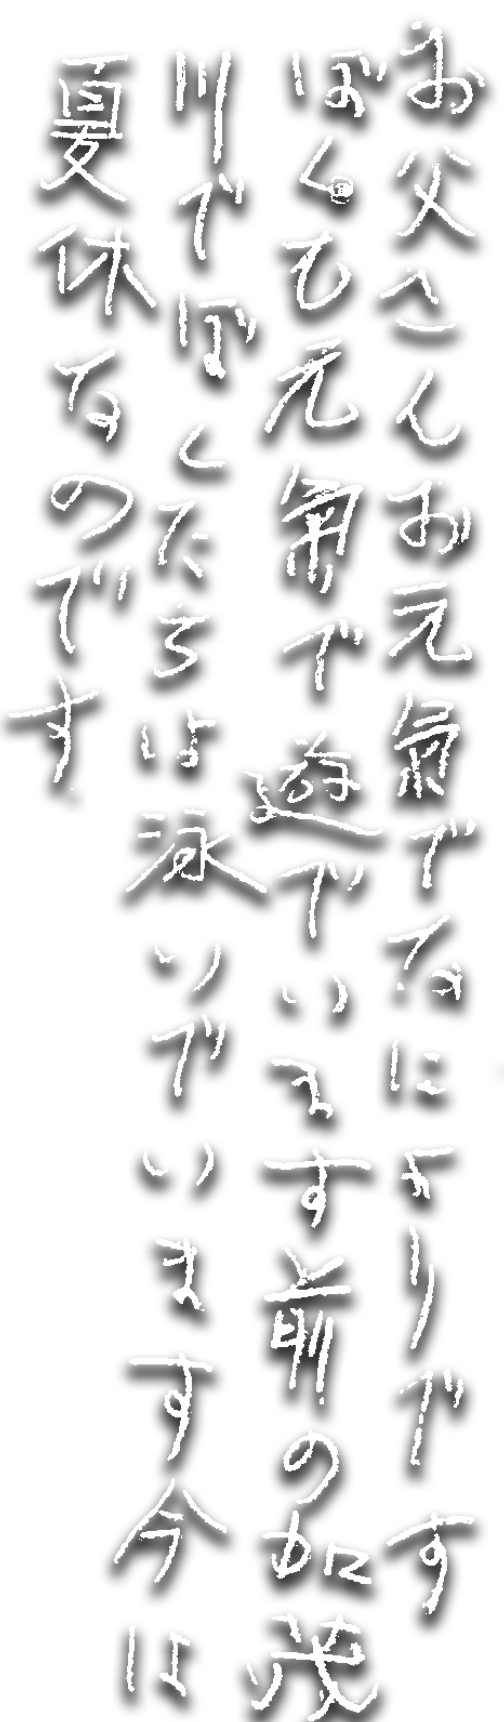 お父さんお元氣でなによりです
ぼくも元氣で遊でいます前の加茂
川でぼくたちは泳いでいます今は
夏休なのです